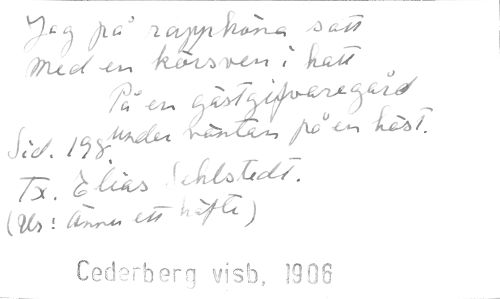 Jag på rapphöna satt
med en körsven i hatt
På en gästgifvaregård
under väntan på en häst.
Sid. 198.
Tx. Elias Sehlstedt.
(Ur: Ännu ett häfte)
Cederberg visb, 1906